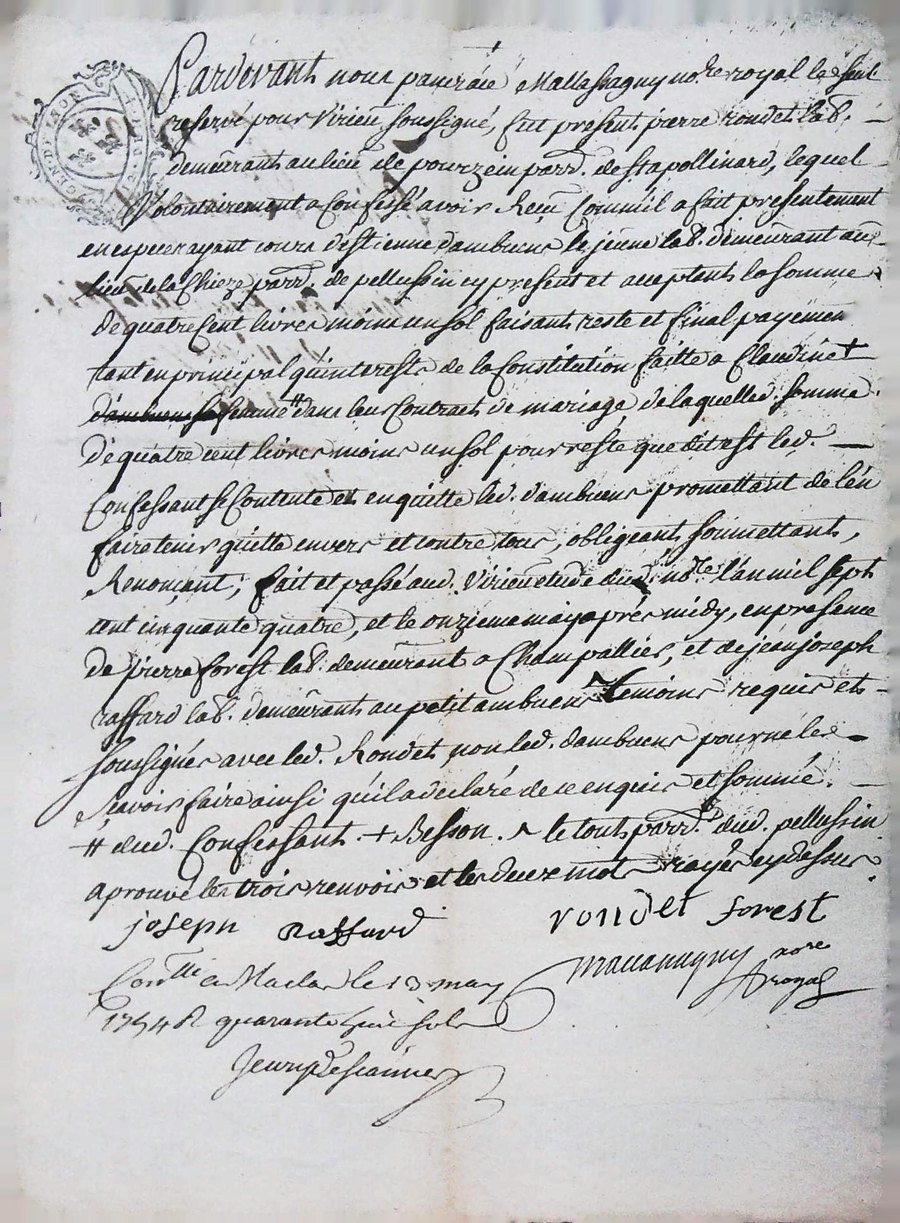 GEN. DE LYON
Pardevant nous pancrace Mallassagny no.re royal la seul
reservé pour Virieu soussigné, fut present pierre rondet lab.
demeurant au lieu de pourzein parr. de st apollinard, lequel
Volontairement a Confessé avoir Receu Comme il a fait presentement
en especes ayant cours d'estienne dambuens le jeune lab. demeurant au
lieu de la Chieze parr. de pellussin cy present et acceptant la somme
de quatre Cent livres moins un sol faisant reste et final payemen
tant en principal qu'interests de la Constitution faitte a Claudine +
dambuens sa femme # dans leur Contract de mariage de laquelle d. somme
de quatre cent livres moins un sol pour reste que dit est led.
Confessant se Contente et en quitte led. dambuens promettant de l'en
faire tenir quitte envers et contre tous, obligeant soumettant,
Renonçant, fait et passé aud. Virieu etude dud. no.re l'an mil sept
cent cinquante quatre, et le onzieme may après midy, en presance
de pierre forest lab. demeurant a Champallier, et de jean joseph
raffard lab. demeurant au petit ambuens ^ temoins requis et
soussignés avec led. Rondet, non led. dambuens pour ne le
scavoir faire ainsi qu'il a declaré de ce enquis et sommé.
# dud. Confessant. + Besson. ^ le tout parr. dud. pellussin
aprouvé les trois renvois et les deux mots rayés cy dessus.
joseph Raffard rondet forest
Mallassagny no.re royal
Con.llé a Maclas le 13 may
1754 R quarante huit sols